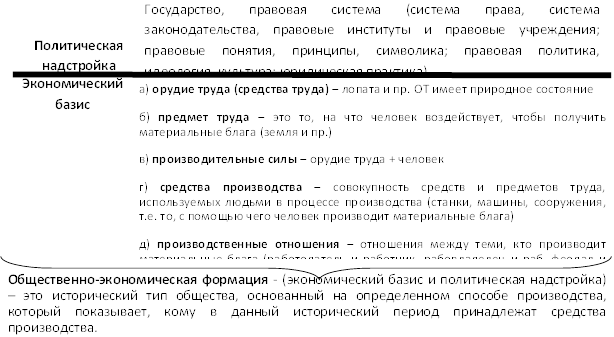 Государство, правовая система (система права, система
законодательства, правовые институты и правовые учреждения;
правовые понятия, принципы, символика; правовая политика,
идеология, культура; юридическая практика)
Политическая
надстройка
Экономический
базис
а) орудие труда (средства труда) – лопата и пр. ОТ имеет природное состояние
б) предмет труда – это то, на что человек воздействует, чтобы получить
материальные блага (земля и пр.)
в) производительные силы – орудие труда + человек
г) средства производства – совокупность средств и предметов труда,
используемых людьми в процессе производства (станки, машины, сооружения,
т.е. то, с помощью чего человек производит материальные блага)
д) производственные отношения – отношения между теми, кто производит
материальные блага (работодатель и работник, рабовладелец и раб, феодал и
Общественно-экономическая формация - (экономический базис и политическая надстройка)
– это исторический тип общества, основанный на определенном способе производства,
который показывает, кому в данный исторический период принадлежат средства
производства.